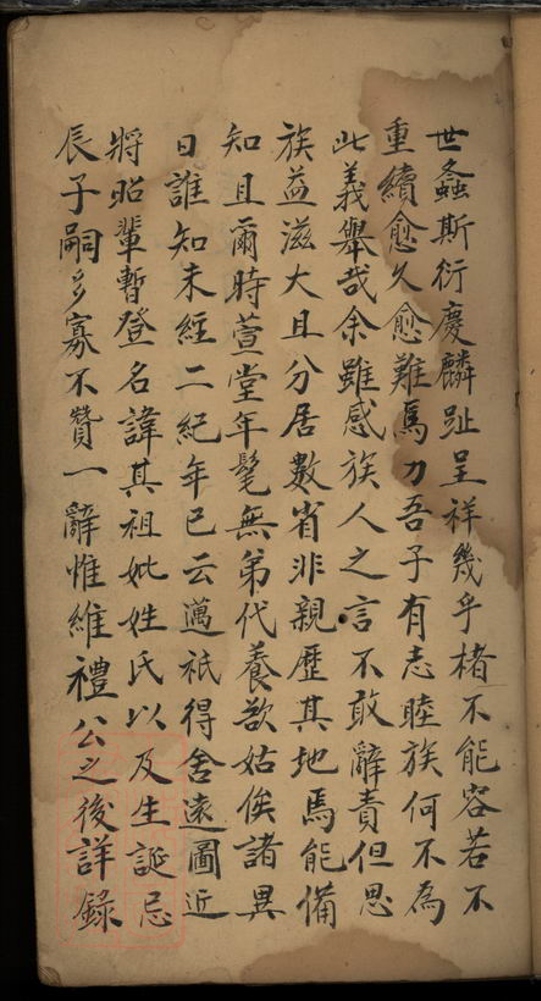 世螽斯衍慶麟趾呈祥幾乎楮不能容若不
重續愈久愈難焉刀吾子有志睦族何不為
此義舉哉余雖感族人之言不敢辭責但思
族益滋大且分居數省非親歷其地焉能備
知且爾時萱堂年髦無弟代養欲姑俟諸異
日誰知未經二紀年已云邁祇得舍遠圖近
將昭輩暫登名諱其祖妣姓氏以及生誕忌
辰子嗣多寡不贊一辭惟維禮公之後詳錄